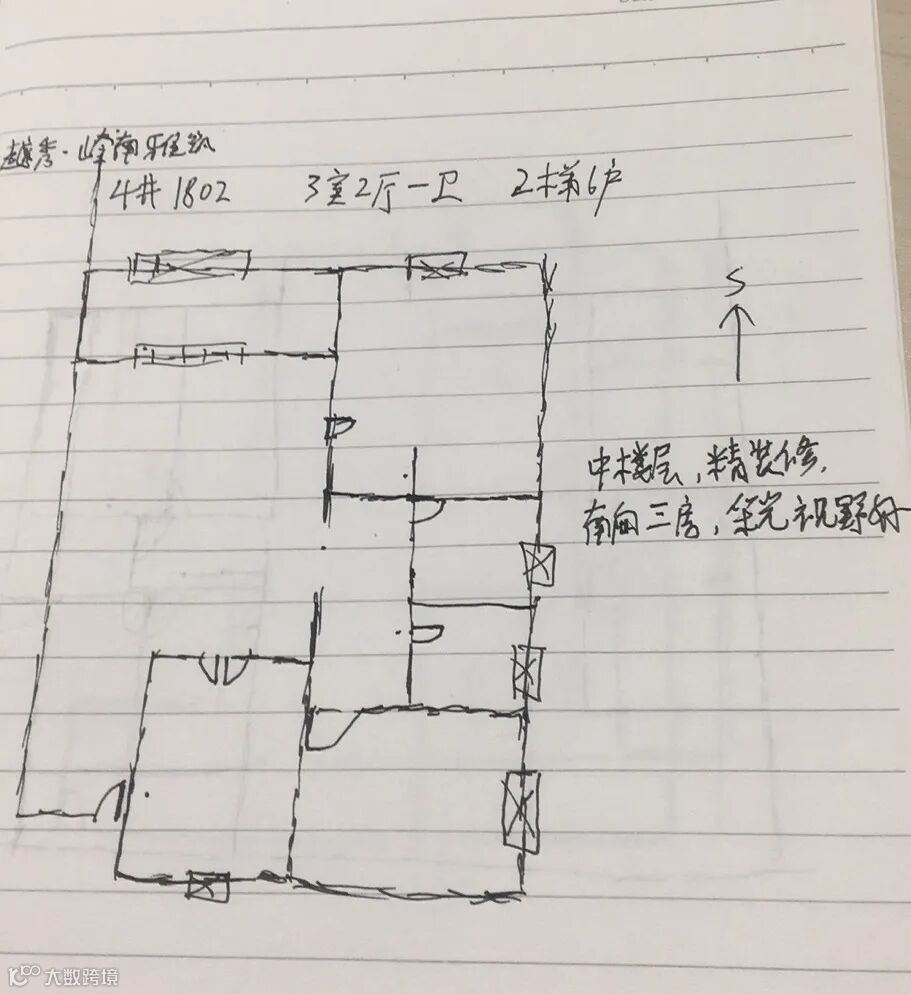 越秀·岭南雅筑
4井1802 3室2厅一卫 2梯6户
S
中楼层,精装修,
南向三房,采光视野好
大数跨境